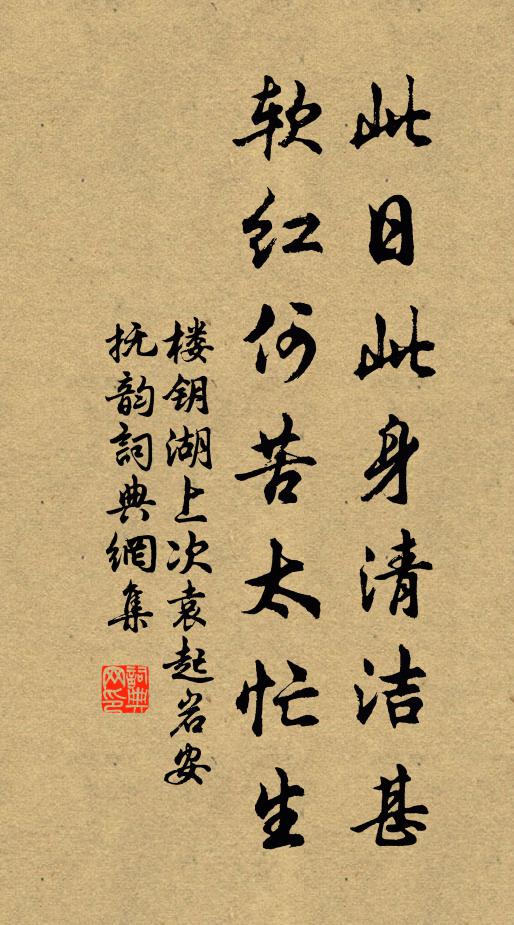 此日此身清洁甚
软红何苦太忙生
楼钥湖上次袁起岩安
抚韵詞典網集
詞典
网印